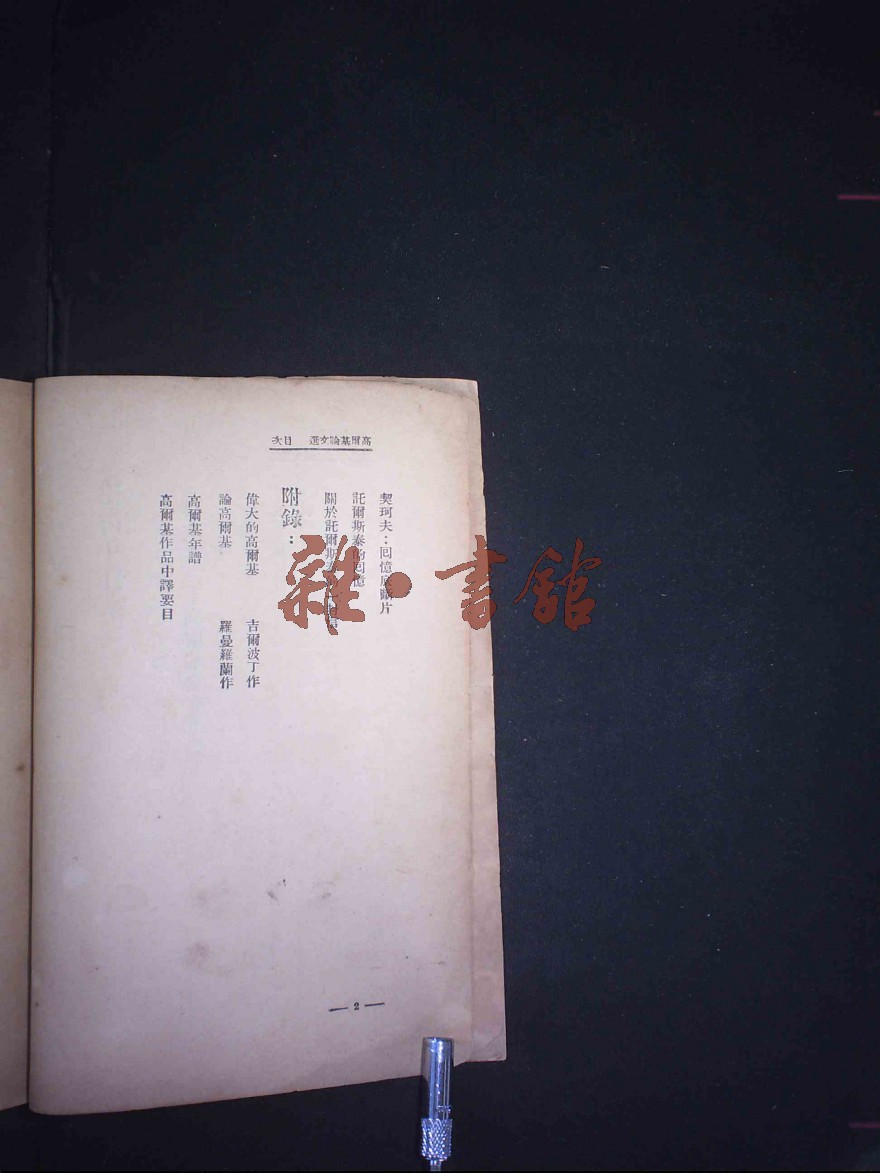 高爾基論文選 目次
契珂夫：回憶底斷片
託爾斯泰的回憶
關於託爾斯泰
附錄：
偉大的高爾基 吉爾波丁作
論高爾基 羅曼羅蘭作
高爾基年譜
高爾基作品中譯要目
— 2 —
雜·書館